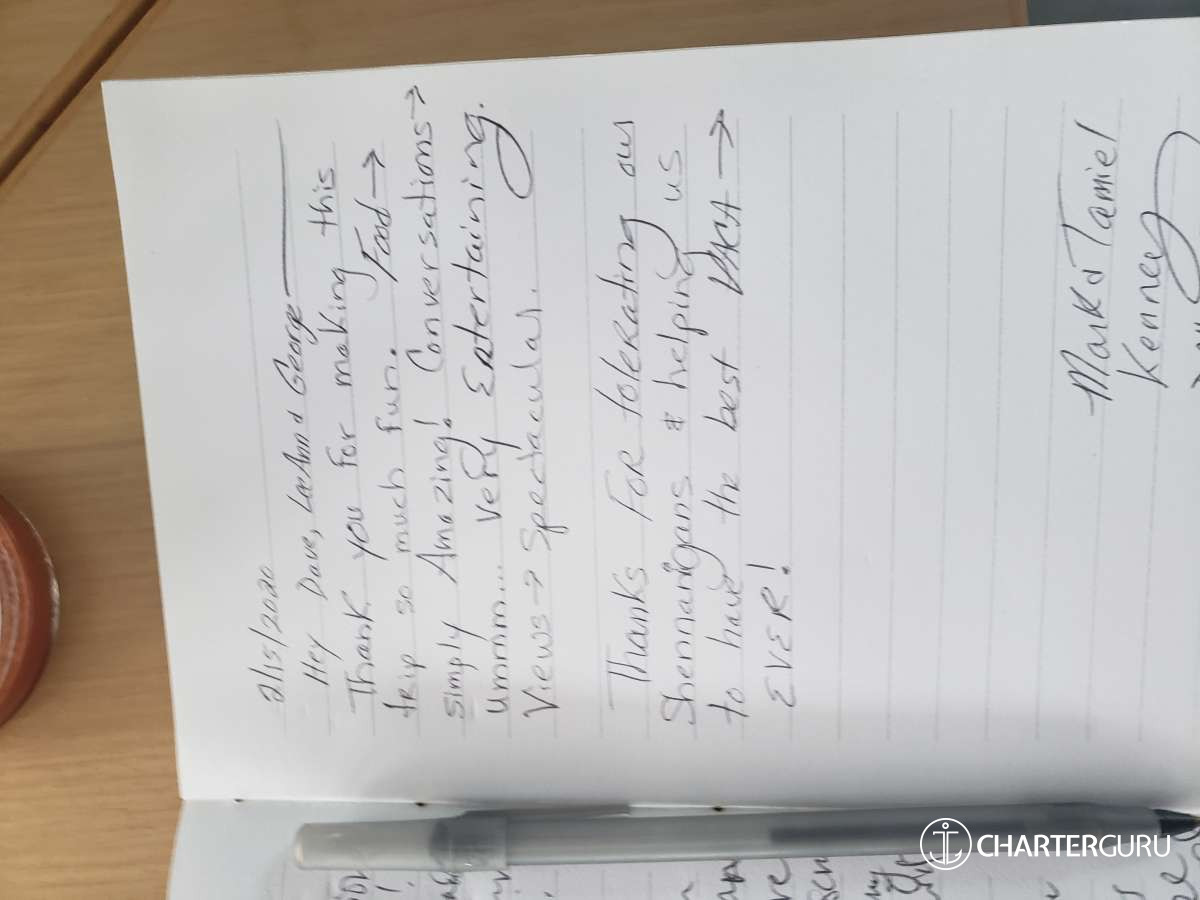 2/15/2020
Hey Dave, LeeAnn & George
Thank you for making this
trip so much fun. Food →
simply Amazing! Conversations →
ummm... very Entertaining.
Views → Spectacular.
Thanks for tolerating our
Shennanigans & helping us
to have the best VACA →
EVER!
Mark & Tamiel
Kenney
CHARTERGURU